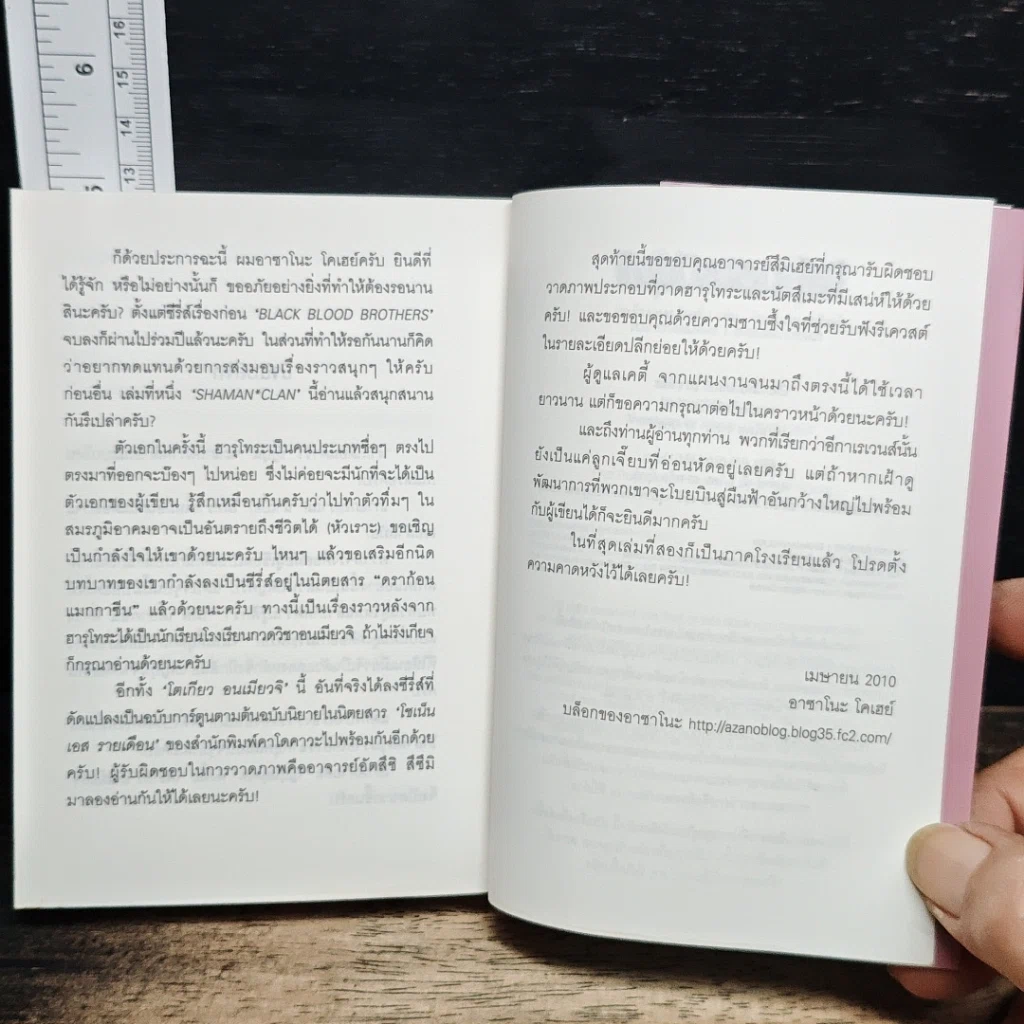 6
5
16
15
14
13
ก็ด้วยประการฉะนี้ ผมอาซาโนะ โคเฮย์ครับ ยินดีที่
ได้รู้จัก หรือไม่อย่างนั้นก็ ขออภัยอย่างยิ่งที่ทำให้ต้องรอนาน
สินะครับ? ตั้งแต่ซีรี่ส์เรื่องก่อน ‘BLACK BLOOD BROTHERS’
จบลงก็ผ่านไปร่วมปีแล้วนะครับ ในส่วนที่ทำให้รอกันนานก็คิด
ว่าอยากทดแทนด้วยการส่งมอบเรื่องราวสนุกๆ ให้ครับ
ก่อนอื่น เล่มที่หนึ่ง ‘SHAMAN*CLAN’ นี้อ่านแล้วสนุกสนาน
กันรึเปล่าครับ?
ตัวเอกในครั้งนี้ ฮารุโทระเป็นคนประเภทซื่อๆ ตรงไป
ตรงมาที่ออกจะบ๊องๆ ไปหน่อย ซึ่งไม่ค่อยจะมีนักที่จะได้เป็น
ตัวเอกของผู้เขียน รู้สึกเหมือนกันครับว่าไปทำตัวทึ่มๆ ใน
สมรภูมิอาคมอาจเป็นอันตรายถึงชีวิตได้ (หัวเราะ) ขอเชิญ
เป็นกำลังใจให้เขาด้วยนะครับ ไหนๆ แล้วขอเสริมอีกนิด
บทบาทของเขากำลังลงเป็นซีรี่ส์อยู่ในนิตยสาร “ดราก้อน
แมกกาซีน” แล้วด้วยนะครับ ทางนี้เป็นเรื่องราวหลังจาก
ฮารุโทระได้เป็นนักเรียนโรงเรียนกวดวิชาอนเมียวจิ ถ้าไม่รังเกียจ
ก็กรุณาอ่านด้วยนะครับ
อีกทั้ง ‘โตเกียว อนเมียวจิ’ นี้ อันที่จริงได้ลงซีรี่ส์ที่
ดัดแปลงเป็นฉบับการ์ตูนตามต้นฉบับนิยายในนิตยสาร ‘โชเน็น
เอส รายเดือน’ ของสำนักพิมพ์คาโดคาวะไปพร้อมกันอีกด้วย
ครับ! ผู้รับผิดชอบในการวาดภาพคืออาจารย์อัตสึชิ สึซึมิ
มาลองอ่านกันให้ได้เลยนะครับ!
สุดท้ายนี้ขอขอบคุณอาจารย์สึมิเฮย์ที่กรุณารับผิดชอบ
วาดภาพประกอบที่วาดฮารุโทระและนัตสึเมะที่มีเสน่ห์ให้ด้วย
ครับ! และขอขอบคุณด้วยความซาบซึ้งใจที่ช่วยรับฟังรีเควสต์
ในรายละเอียดปลีกย่อยให้ด้วยครับ!
ผู้ดูแลเคตี้ จากแผนงานจนมาถึงตรงนี้ได้ใช้เวลา
ยาวนาน แต่ก็ขอความกรุณาต่อไปในคราวหน้าด้วยนะครับ!
และถึงท่านผู้อ่านทุกท่าน พวกที่เรียกว่าอีกาเรเวนส์นั้น
ยังเป็นแค่ลูกเจี๊ยบที่อ่อนหัดอยู่เลยครับ แต่ถ้าหากเฝ้าดู
พัฒนาการที่พวกเขาจะโบยบินสู่ผืนฟ้าอันกว้างใหญ่ไปพร้อม
กับผู้เขียนได้ก็จะยินดีมากครับ
ในที่สุดเล่มที่สองก็เป็นภาคโรงเรียนแล้ว โปรดตั้ง
ความคาดหวังไว้ได้เลยครับ!
เมษายน 2010
อาซาโนะ โคเฮย์
บล็อกของอาซาโนะ http://azanoblog.blog35.fc2.com/